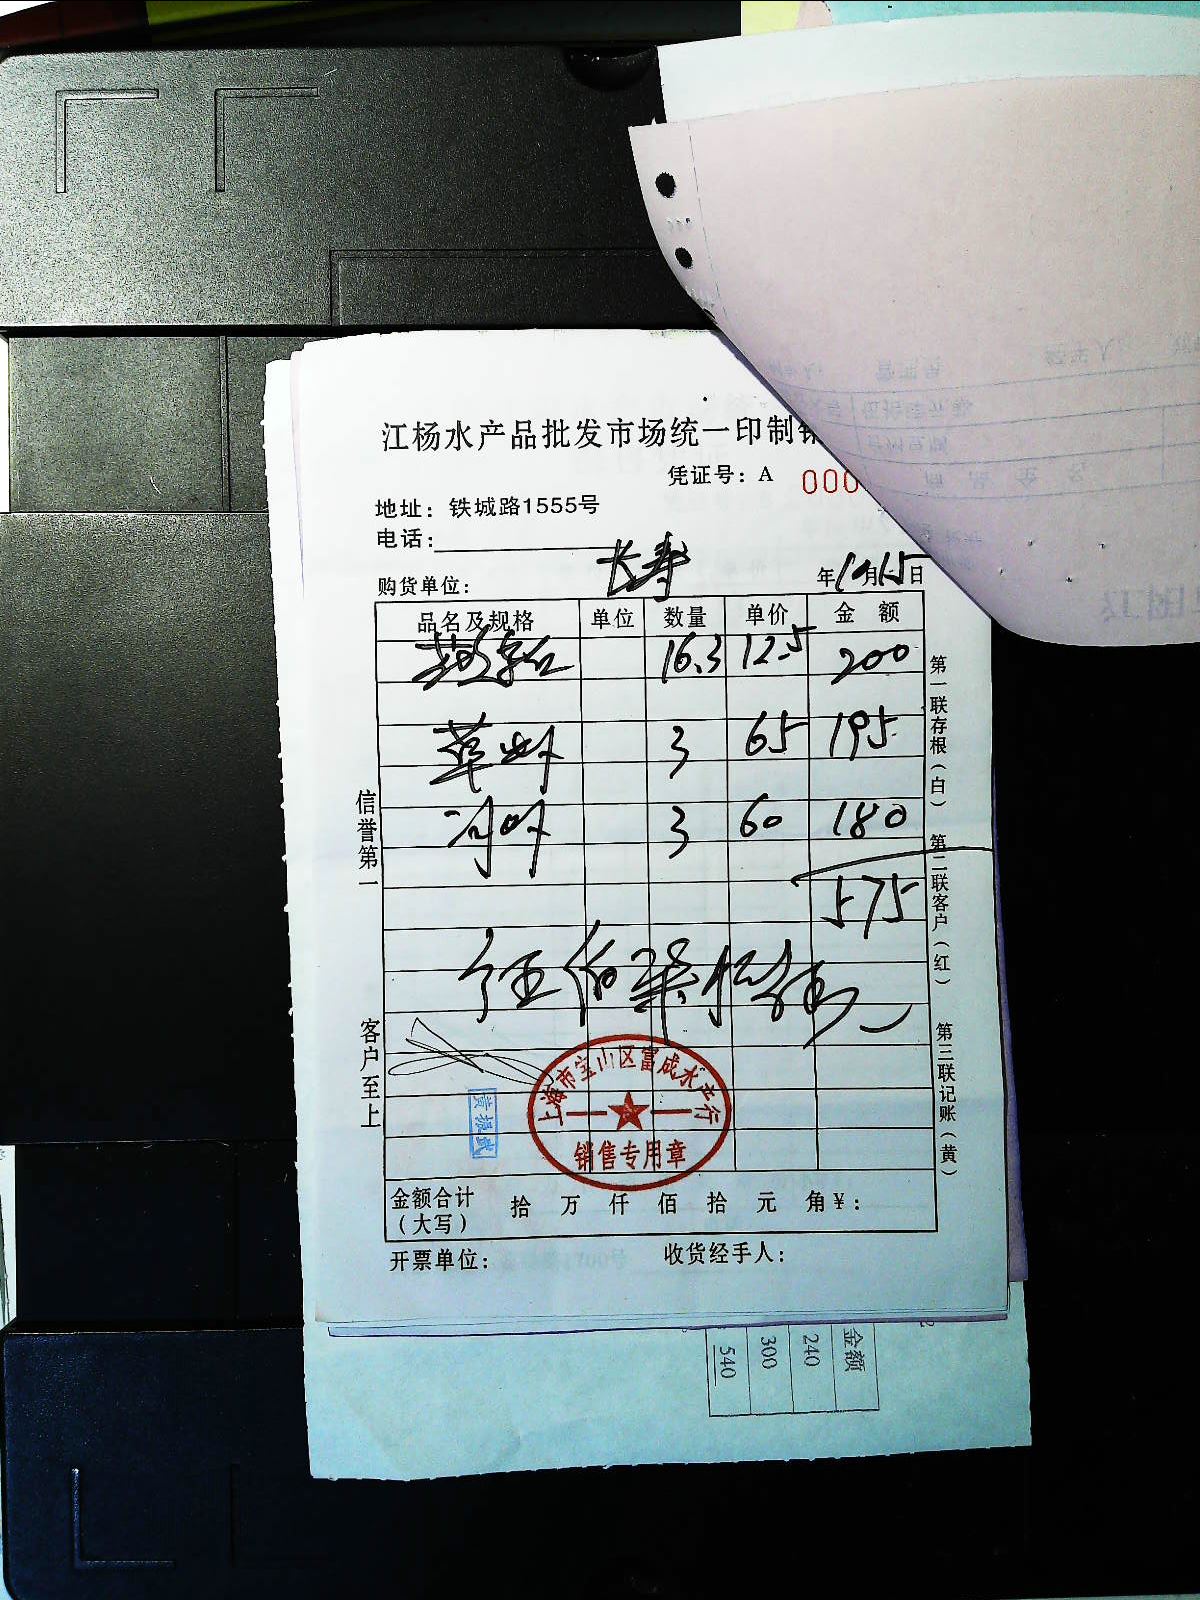 江杨水产品批发市场统一印制销
凭证号：A 000
地址：铁城路1555号
电话：
购货单位： 长寿 年10月15日
品名及规格 单位 数量 单价 金额
16.3 12.5 200
草虾 3 65 195
河虾 3 60 180
575
伍佰柒拾伍元
信誉第一
客户至上
第一联存根（白） 第二联客户（红） 第三联记账（黄）
上海市宝山区富成水产行
销售专用章
黄振武
金额合计（大写） 拾 万 仟 佰 拾 元 角 ¥：
开票单位： 收货经手人：
金额
240
300
540